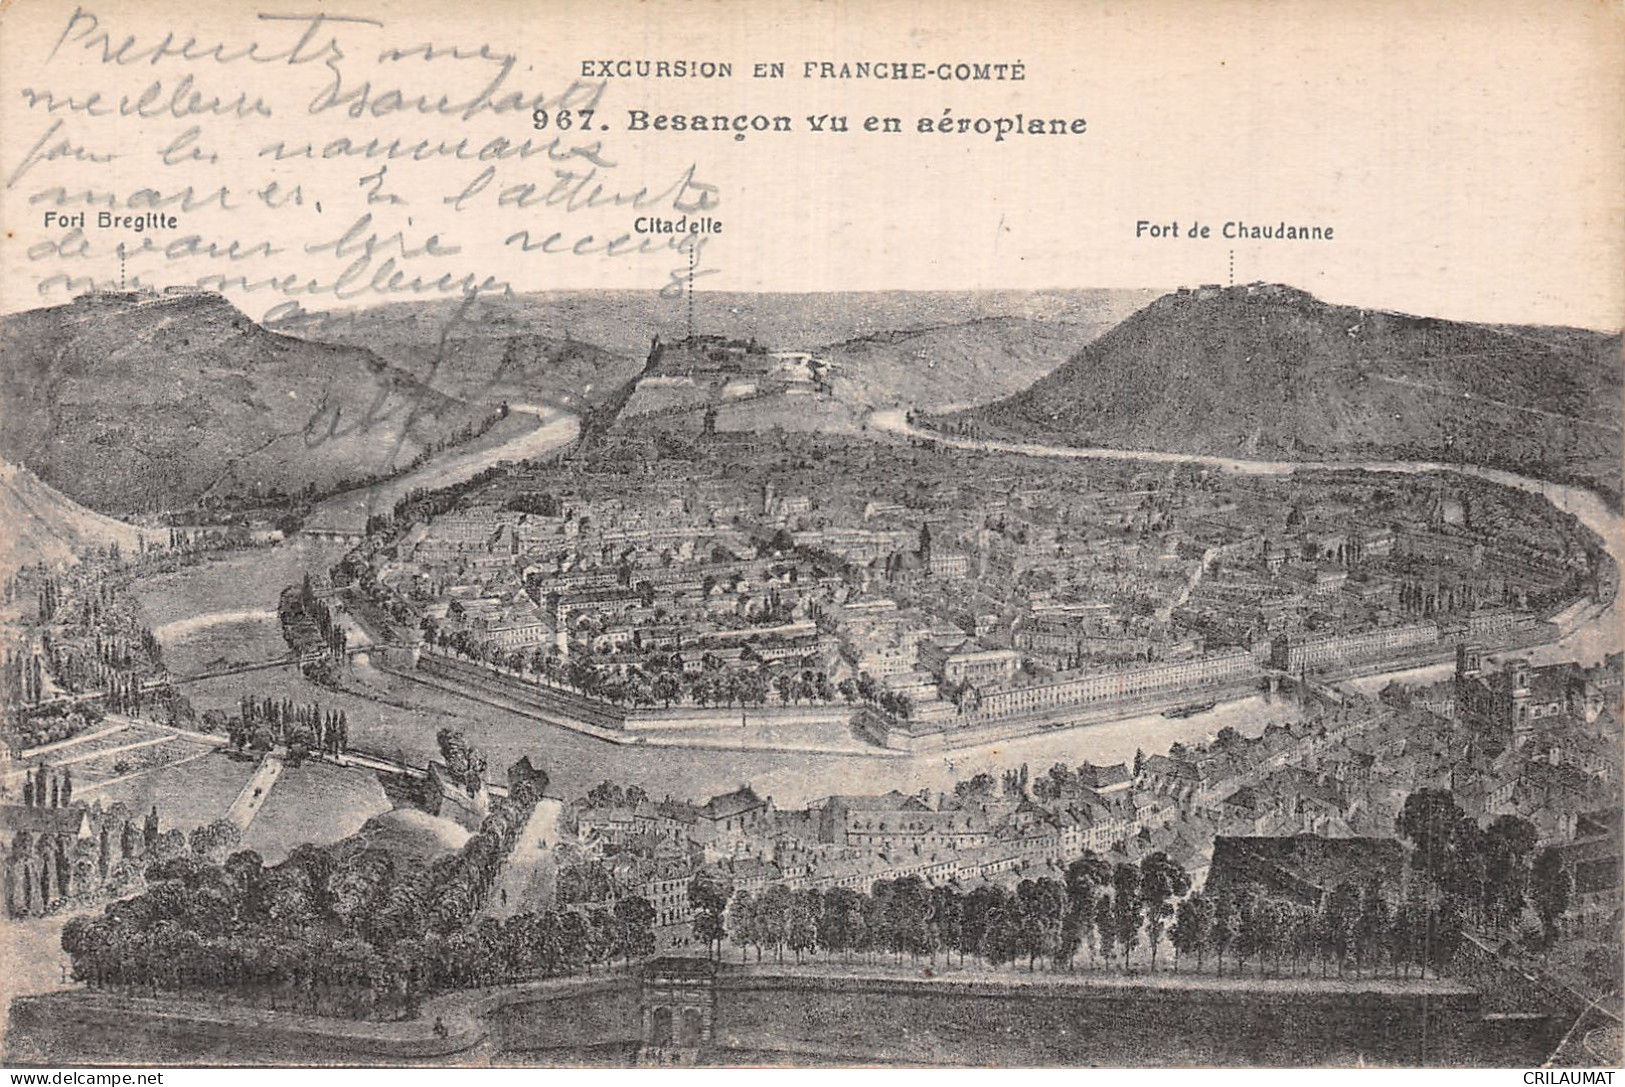 Presentez mes
meilleurs souhaits
pour les nouveaux
mariés. En l'attente
de vous lire recevez
mes meilleures
amitiés
EXCURSION EN FRANCHE-COMTÉ
967. Besançon vu en aéroplane
Fort Bregitte
Citadelle
Fort de Chaudanne
delcampe.net
CRILAUMAT